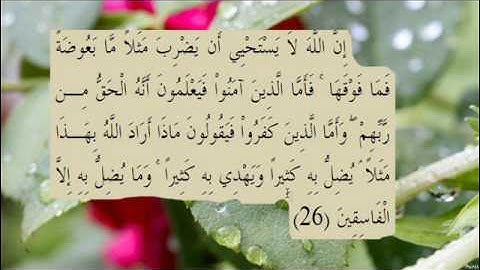 إِنَّ اللَّهَ لاَ يَسْتَحْيِي أَن يَضْرِبَ مَثَلاً مَّا بَعُوضَةً
فَمَا فَوْقَهَا ۚ فَأَمَّا الَّذِينَ آمَنُواْ فَيَعْلَمُونَ أَنَّهُ الْحَقُّ مِـــن
رَّبِّهِمْ ۖ وَأَمَّا الَّذِينَ كَفَرُواْ فَيَقُولُونَ مَاذَا أَرَادَ اللَّهُ بِهَـــذَا
مَثَلاً ۘ يُضِلُّ بِهِ كَثِيراً وَيَهْدِي بِهِ كَثِيراً ۚ وَمَا يُضِلُّ بِهِ إِلاَّ
الْفَاسِقِينَ (26)